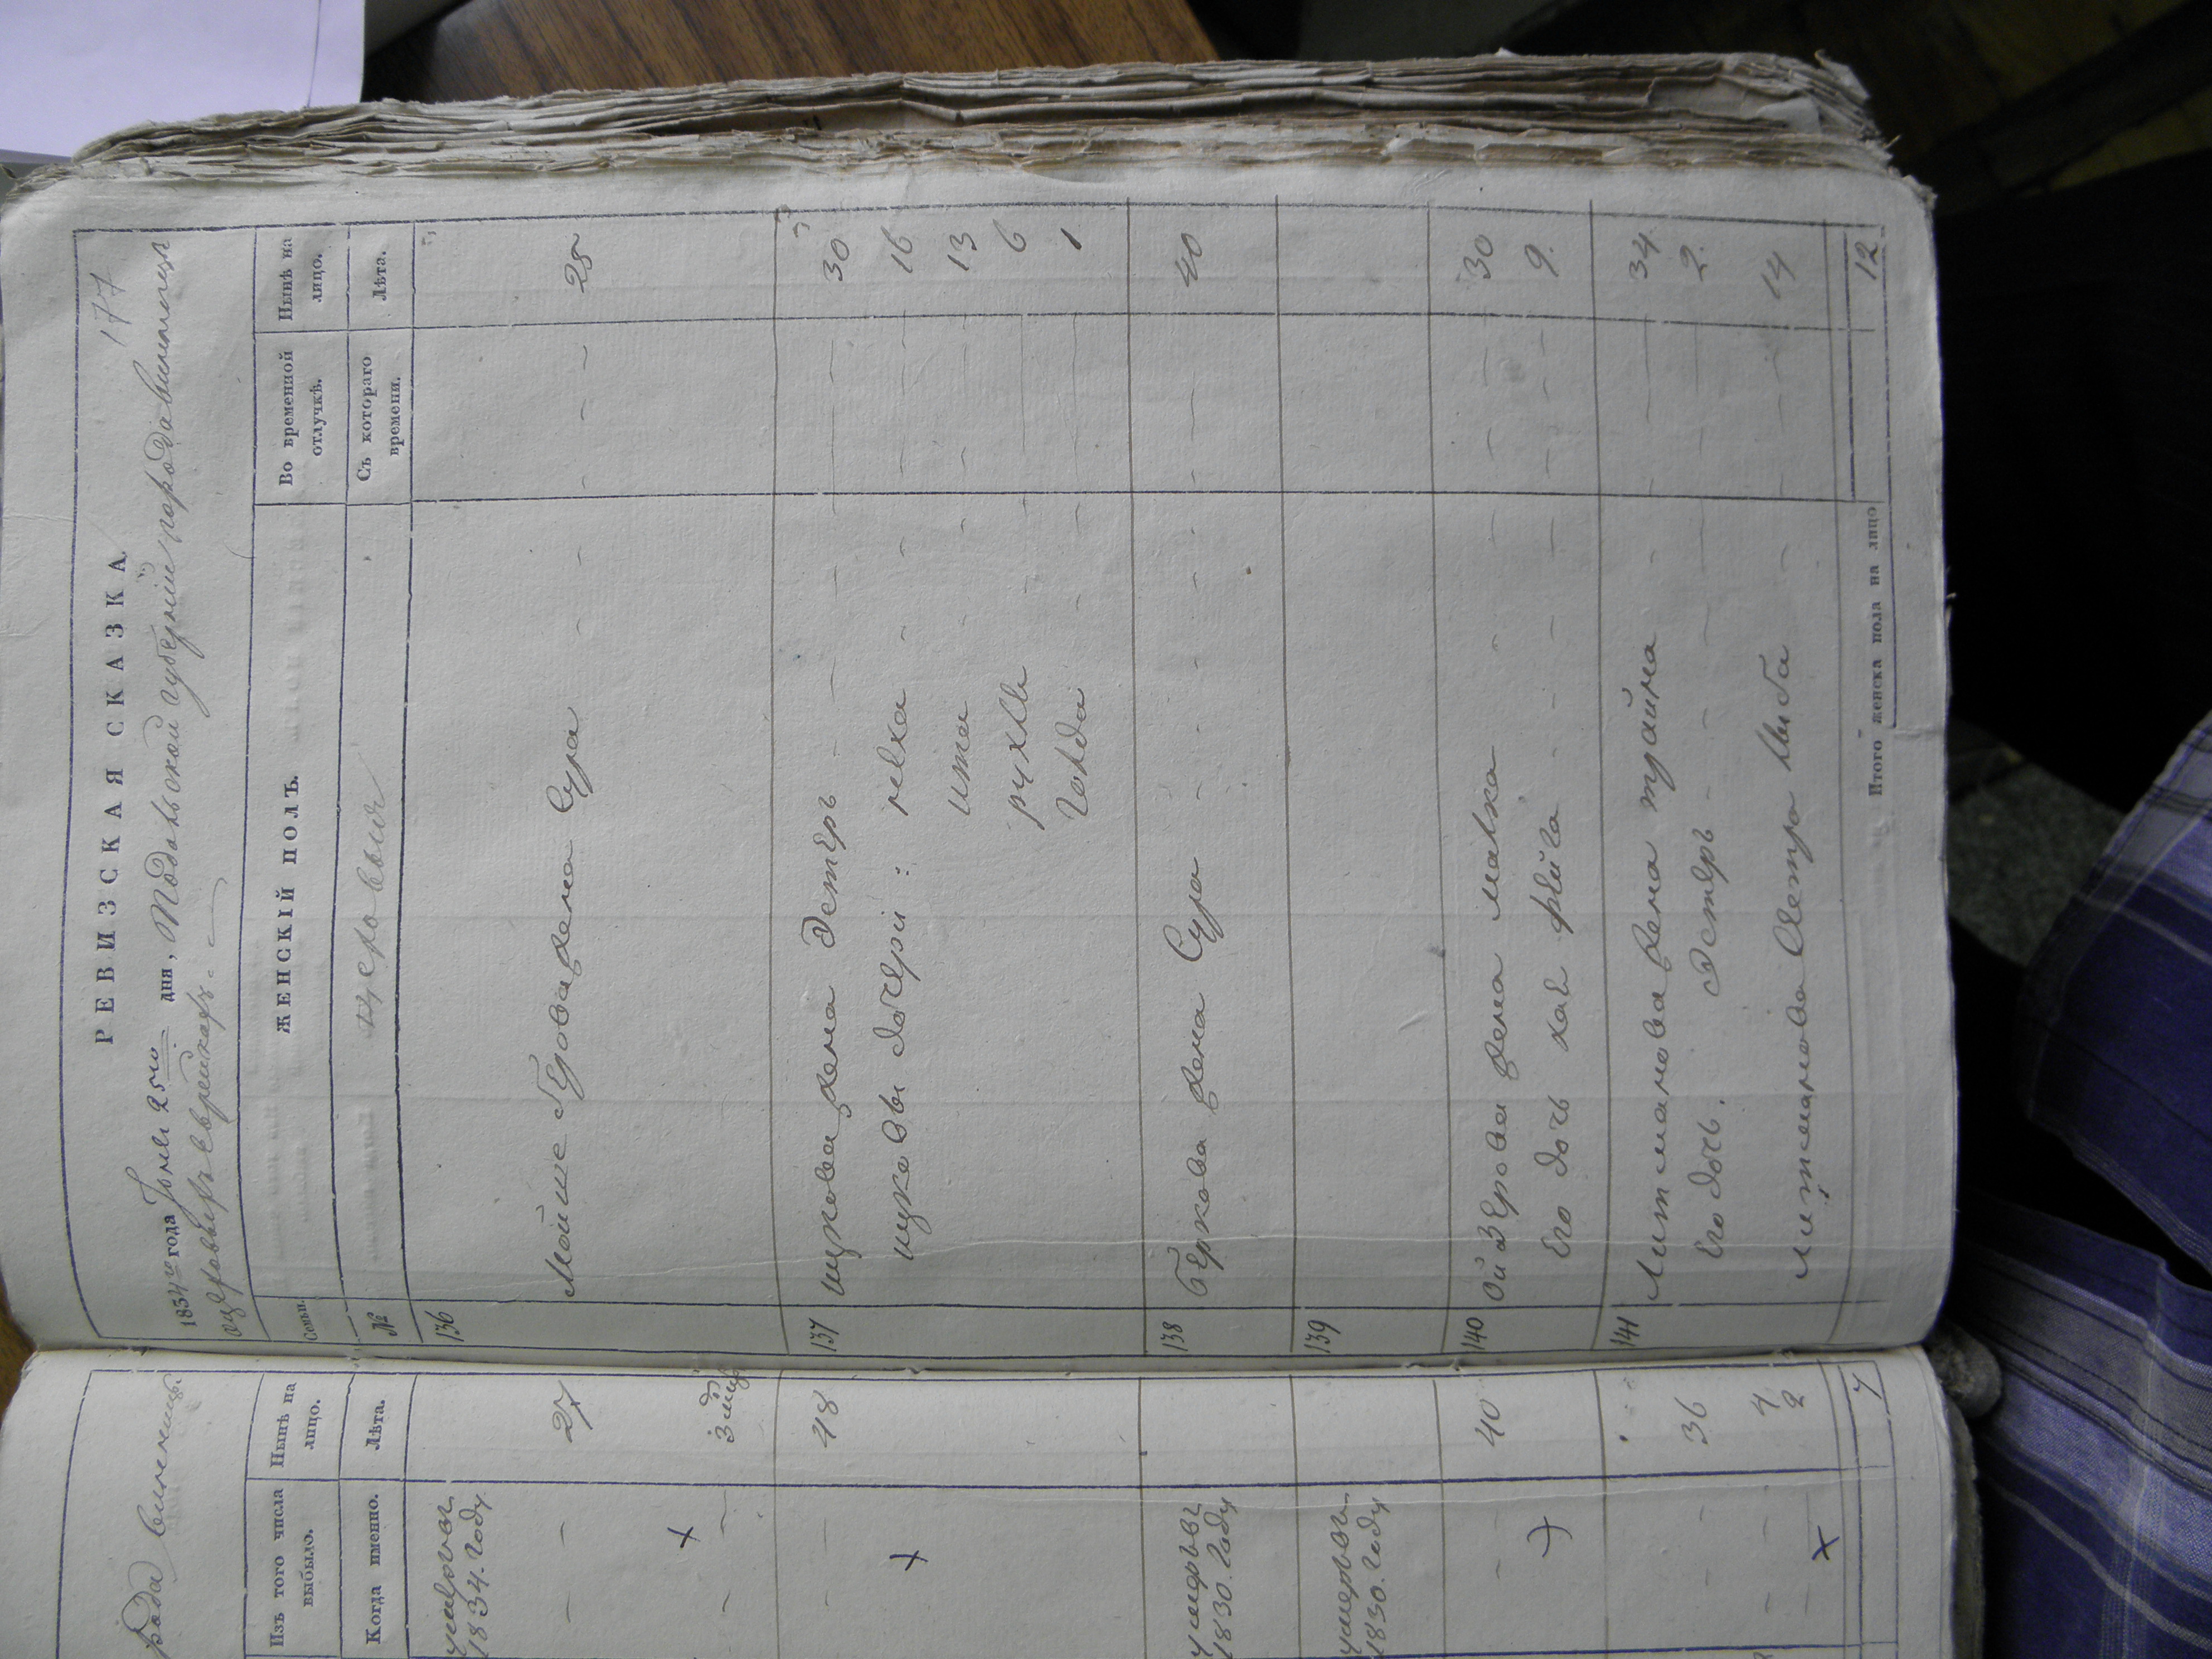 рода Винницы
Изъ того числа выбыло.
Нынѣ на лицо.
Когда именно.
Лѣта.
умеръ въ
1834. Году
- - 27
- - 3 мѣс
- - 48
умеръ въ
1830. Году
умеръ въ
1830. Году
- - 40
- - 36
- - 4
- - 2
7
177
РЕВИЗСКАЯ СКАЗКА
1834го года Іюня 25го дня, Подольской губерніи города Винницы
о евреикахъ.
Семьи.
ЖЕНСКІЙ ПОЛЪ.
Во временной отлучкѣ.
Нынѣ на лицо.
№
Съ котораго времени.
Лѣта.
136
Мойше Берова жена Сура - - - - 28
137 ицкова жена Эстеръ - - - - 30
ицковы дочери: релха - - - 16
ита - - - 13
рухля - - - 6
голда - - - 1
138 Беркова жена Сура - - - - 40
139
140 Ойзерова жена малка - - - 30
Его дочь хая фейга - - - 9.
141 Литманова жена трайна - - - 34
Его дочь. Эстеръ - - - 2.
Литманова сестра Либа - - - 14
Итого женска пола на лицо 12